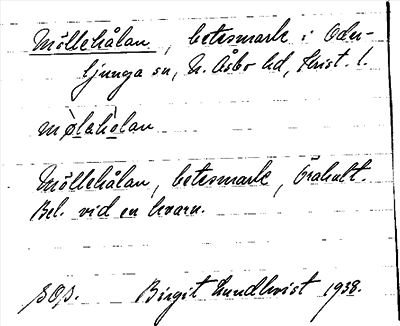 Möllehålan, betesmark i Oder-
ljunga sn, N. Åsbo hd, Krist. l.
mø̀lahòlan
Möllehålan, betesmark, Örahult.
Bel. vid en kvarn.
Birgit Lundkvist 1938.